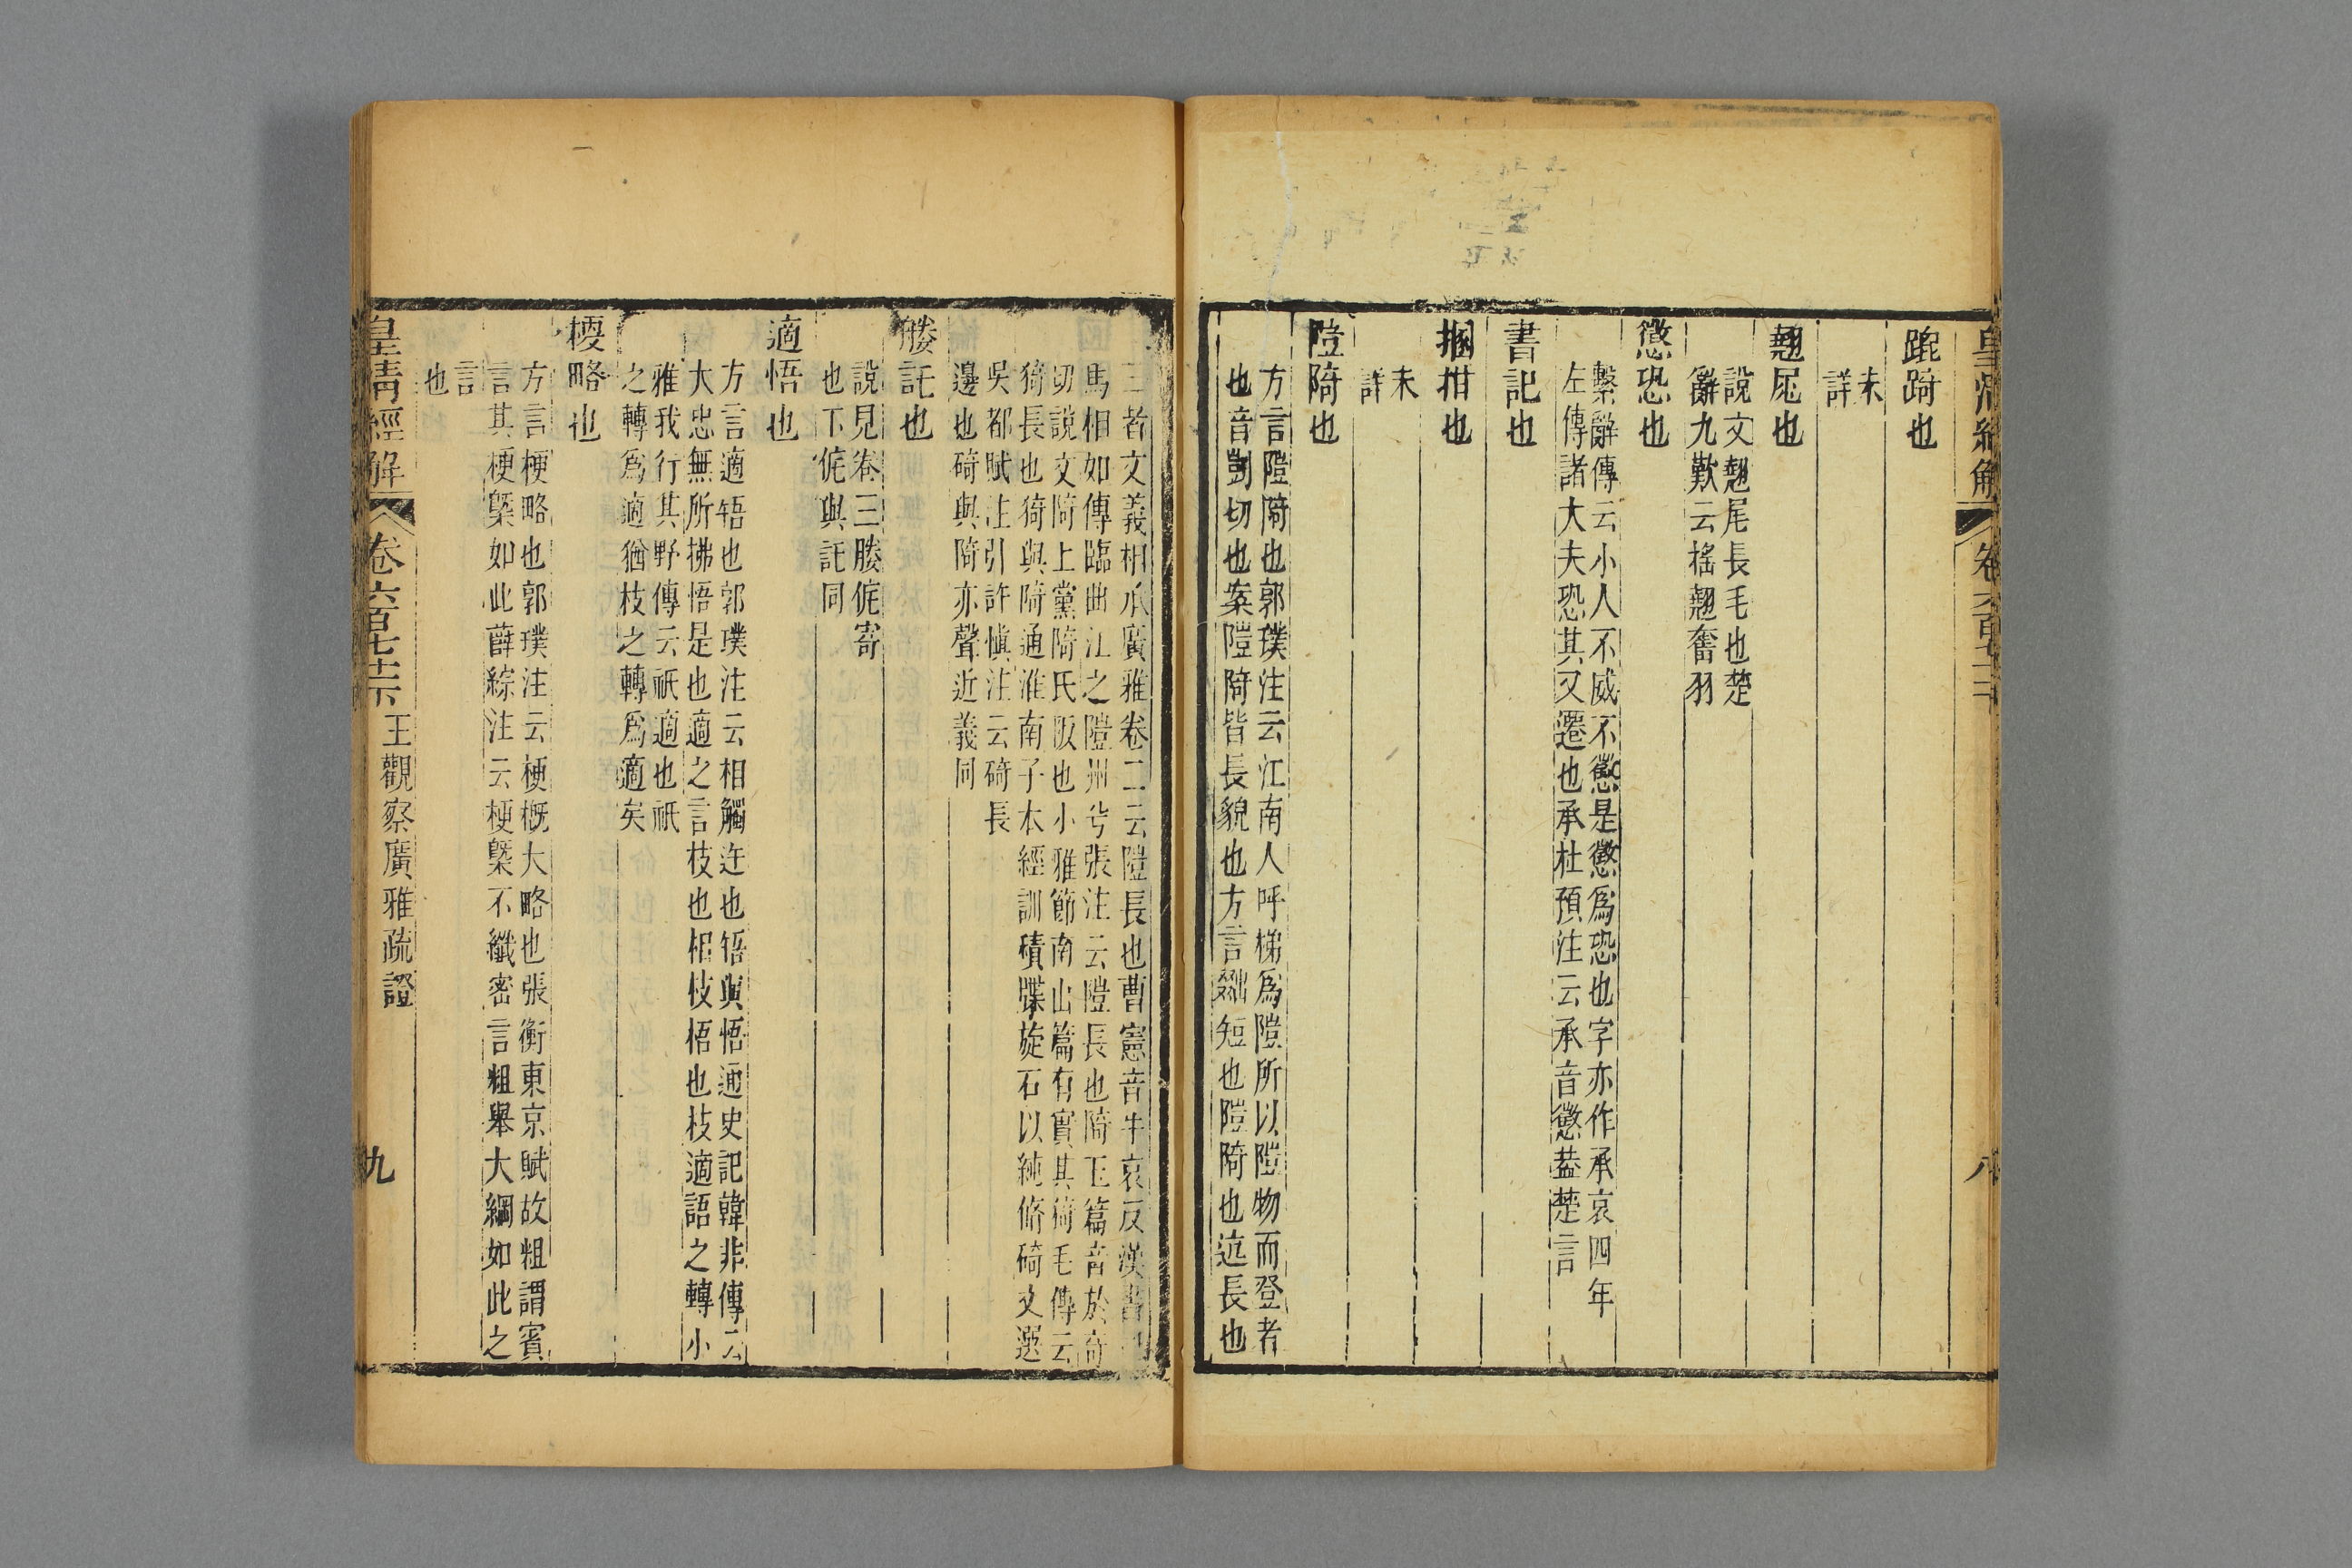 皇清經解
卷六百七十三下
八
䠊踦也
未
詳
翹尾也
說文翹尾長毛也楚
辭九歎云搖翹奮羽
懲恐也
繫辭傳云小人不威不懲是懲爲恐也字亦作承哀四年
左傳諸大夫恐其又遷也承杜預注云承音懲葢楚言
書記也
搁拑也
未
詳
隑陭也
方言隑陭也郭璞注云江南人呼梯爲隑所以隑物而登者
也音剴切也案隑陭皆長貌也方言䠂短也隑陭也远長也
三者文義相承廣雅卷二云隑長也曹憲音牛哀反漢書司
馬相如傳臨曲江之隑州兮張注云隑長也陭玉篇音於奇
切說文陭上黨陭氏阪也小雅節南山篇有實其猗毛傳云
猗長也猗與陭通淮南子本經訓積牒旋石以純脩碕文選
吳都賦注引許愼注云碕長
邊也碕與陭亦聲近義同
媵託也
說見卷三媵侂寄
也下侂與託同
適悟也
方言適牾也郭璞注云相觸迕也牾與悟通史記韓非傳云
大忠無所拂悟是也適之言枝也相枝梧也枝適語之轉小
雅我行其野傳云祇適也祇
之轉爲適猶枝之轉爲適矣
梗略也
方言梗略也郭璞注云梗槪大略也張衡東京賦故粗謂賓
言其梗槩如此薛綜注云梗槩不纖密言粗舉大綱如此之
言
也
皇清經解
卷六百七十三下
王觀察廣雅疏證
九